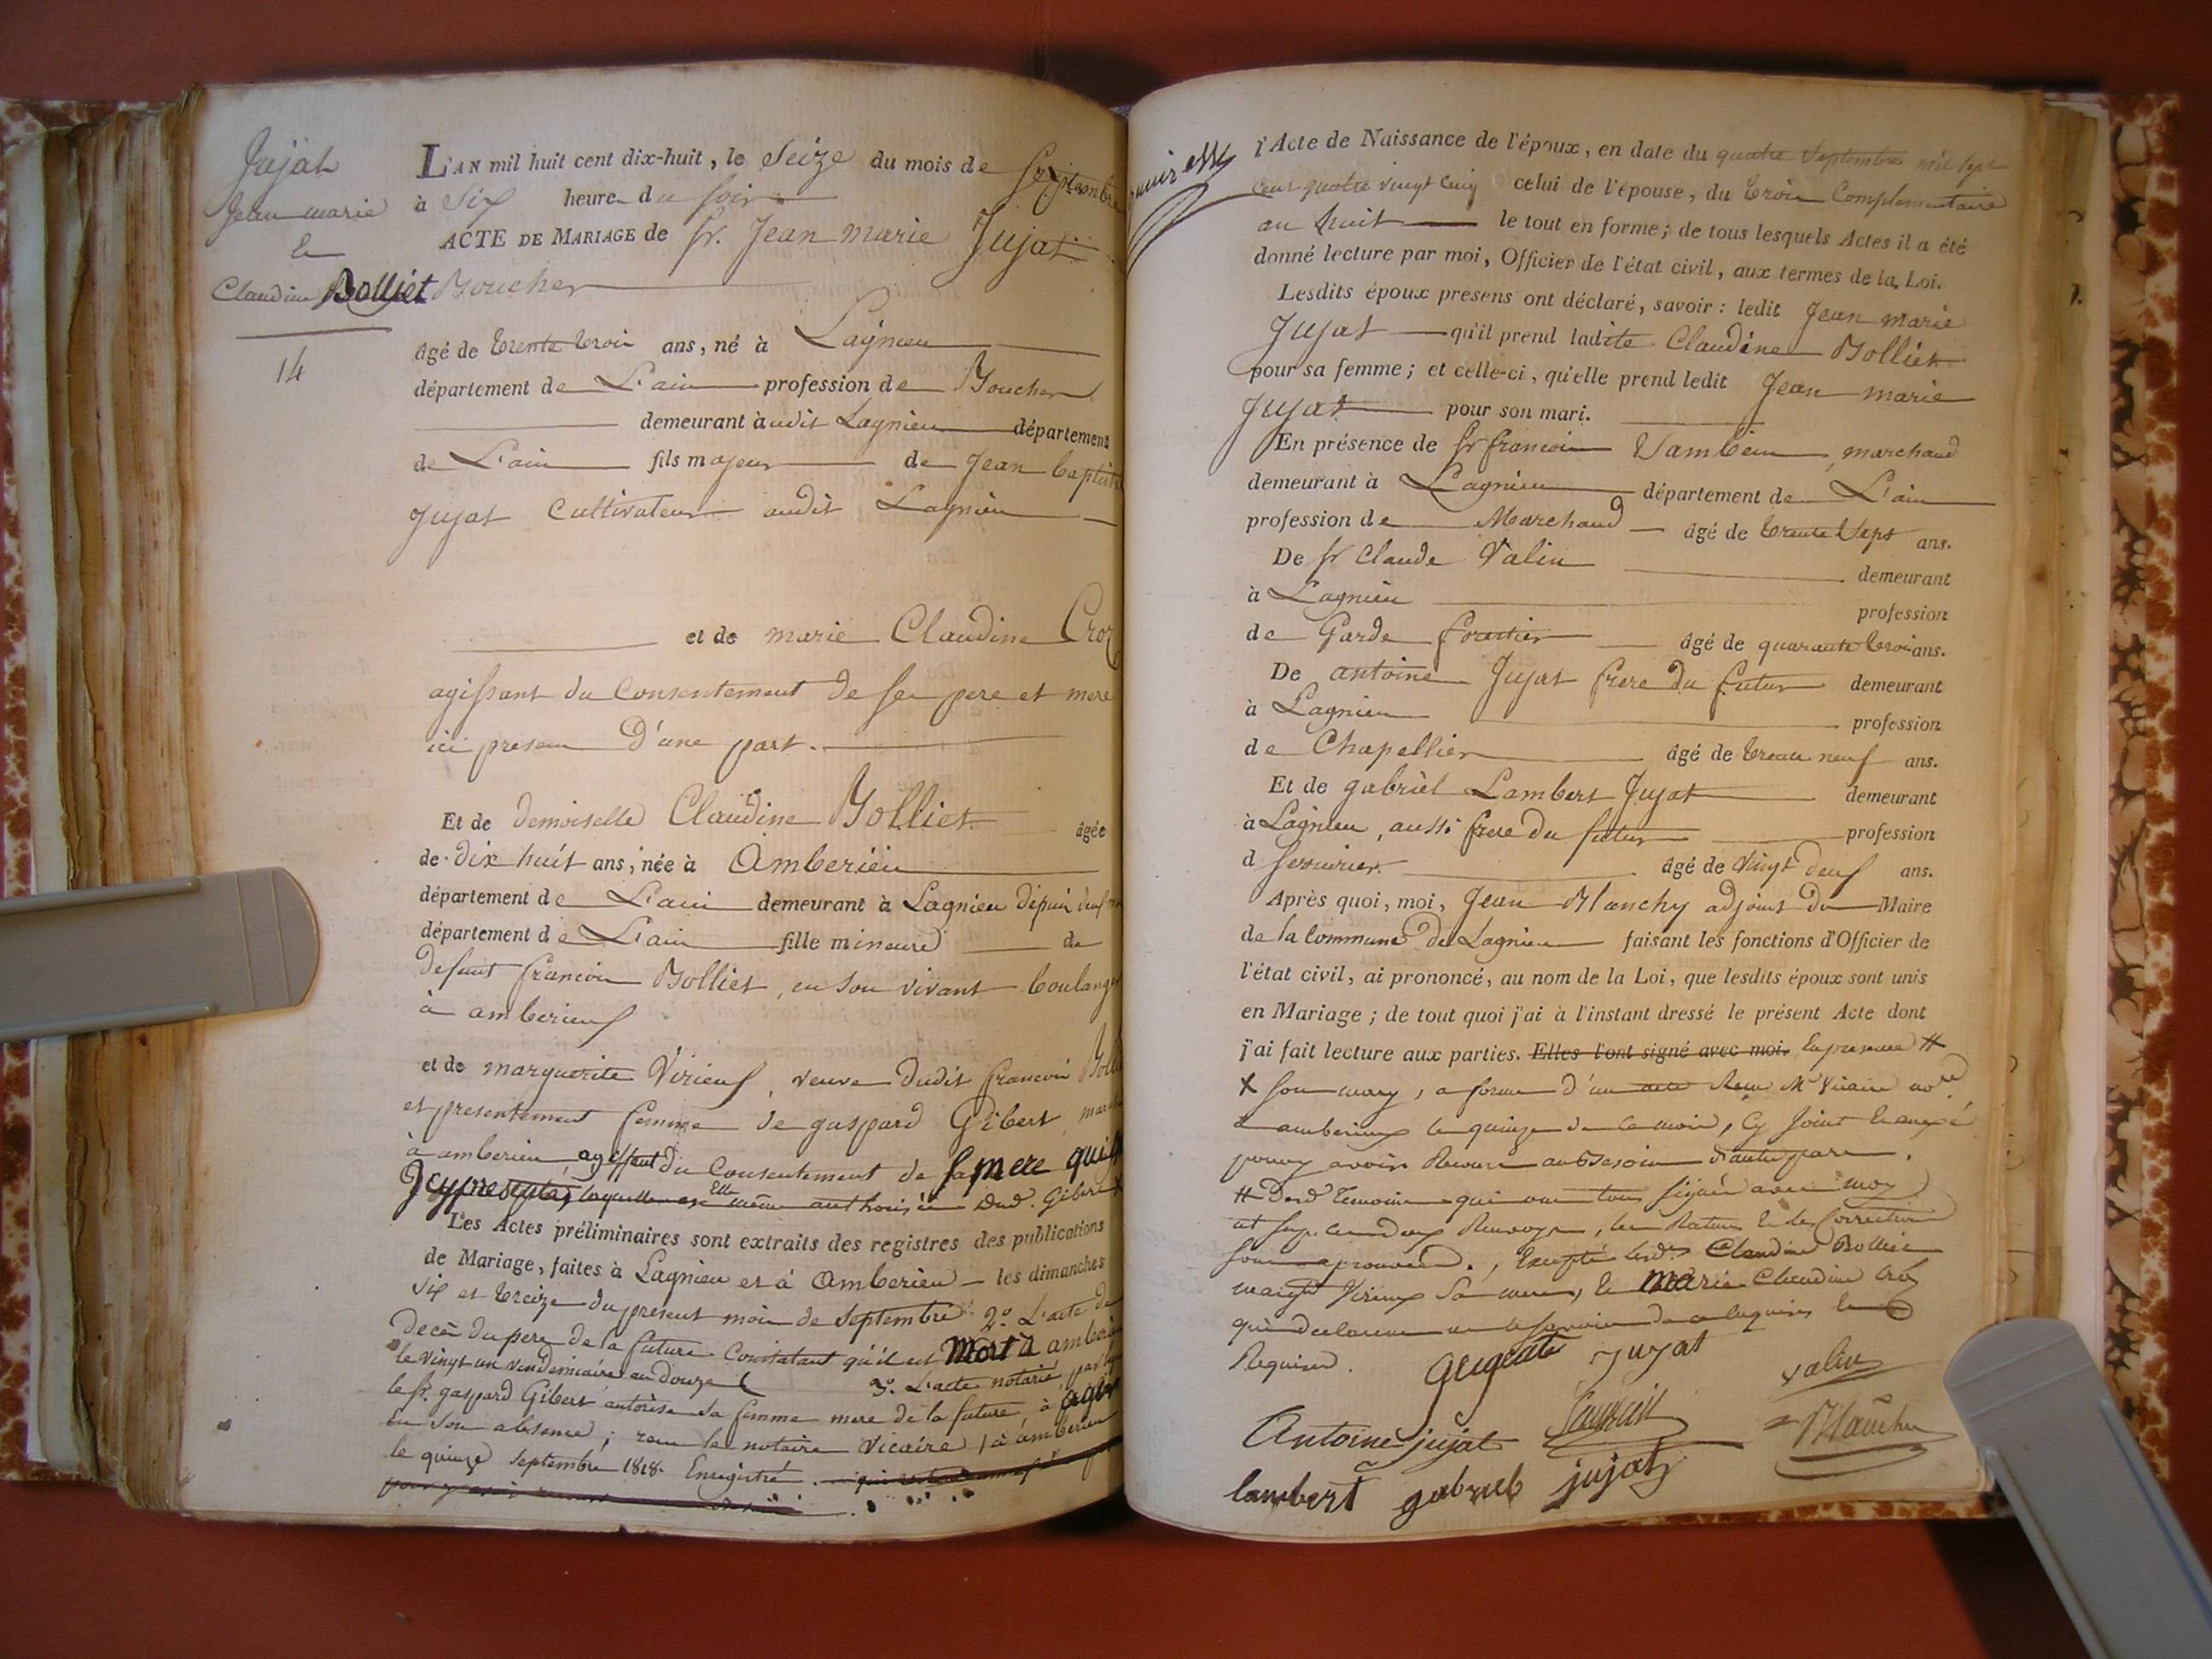 Jujat
Jean marie
&
Claudine Bolliet
14
L'AN mil huit cent dix-huit, le Seize du mois de Septembre
à Six heure du soir
ACTE DE MARIAGE de Sr. Jean marie Jujat
Boucher
âgé de trente trois ans, né à Lagnieu
département de L'ain profession de Boucher
demeurant audit Lagnieu département
de L'ain fils majeur de Jean baptiste
Jujat Cultivateur audit Lagnieu
et de marie Claudine Croz
agissant du Consentement de ses pere et mere
ici presens D'une part.
Et de demoiselle Claudine Bolliet âgée
de dix huit ans, née à Amberieu
département de L'ain demeurant à Lagnieu depuis deux
département de L'ain fille mineure de
defunt francois Bolliet, en son vivant boulanger
à amberieux
et de marguerite Virieux, veuve dudit francois
et presentement femme de gaspard Gibert
à amberieu agissant du Consentement de sa mere
laquelle est Elle même authorisée Dud. Gibert X
Les Actes préliminaires sont extraits des registres des publications
de Mariage, faites à Lagnieu et à Amberieu les dimanches
Six et treize du present mois de Septembre 2.° L'acte de
decès du pere de la future Constatant qu'il est Mort à
le vingt un vendemiaire an douze 3.° L'acte notarié
le Sr. gaspard Gibert autorise sa femme mere de la future, à agir
en son absence; reçu le notaire Vicaire, à amberieu
le quinze Septembre 1818. Enregistré.
l'Acte de Naissance de l'époux, en date du quatre Septembre mil sept
cent quatre vingt cinq celui de l'épouse, du trois Complementaire
an huit le tout en forme; de tous lesquels Actes il a été
donné lecture par moi, Officier de l'état civil, aux termes de la Loi.
Lesdits époux presens ont déclaré, savoir: ledit Jean marie
Jujat qu'il prend ladite Claudine Bolliet
pour sa femme; et celle-ci, qu'elle prend ledit Jean marie
Jujat pour son mari.
En présence de Sr francois marchand
demeurant à Lagnieu département de L'ain
profession de Marchand âgé de trente Sept ans.
De Sr Claude Valin demeurant
à Lagnieu profession
de Garde forestier âgé de quarante trois ans.
De antoine Jujat frere du futur demeurant
à Lagnieu profession
de Chapellier âgé de trente neuf ans.
Et de gabriel Lambert Jujat demeurant
à Lagnieu, aussi frere du futur profession
d serrurier âgé de vingt deux ans.
Après quoi, moi, Jean Blanchy adjoint du Maire
de la commune de Lagnieu faisant les fonctions d'Officier de
l'état civil, ai prononcé, au nom de la Loi, que lesdits époux sont unis
en Mariage; de tout quoi j'ai à l'instant dressé le présent Acte dont
j'ai fait lecture aux parties. Elles l'ont signé avec moi. En presence #
X son mary, a forme d'un acte Reçu Me Vicaire
a amberieux le quinze de ce mois, Cy Joint
pour y avoir Recours au Besoin D'autre part.
# Desd. temoins qui ont tous signé avec moy
Claudine Bolliet
Virieux Sa mere, & marie Claudine Croz
qui declarent ne le savoir de ce Requises
Requises.
Jujat
valin
Antoine jujat
lambert gabriel jujat